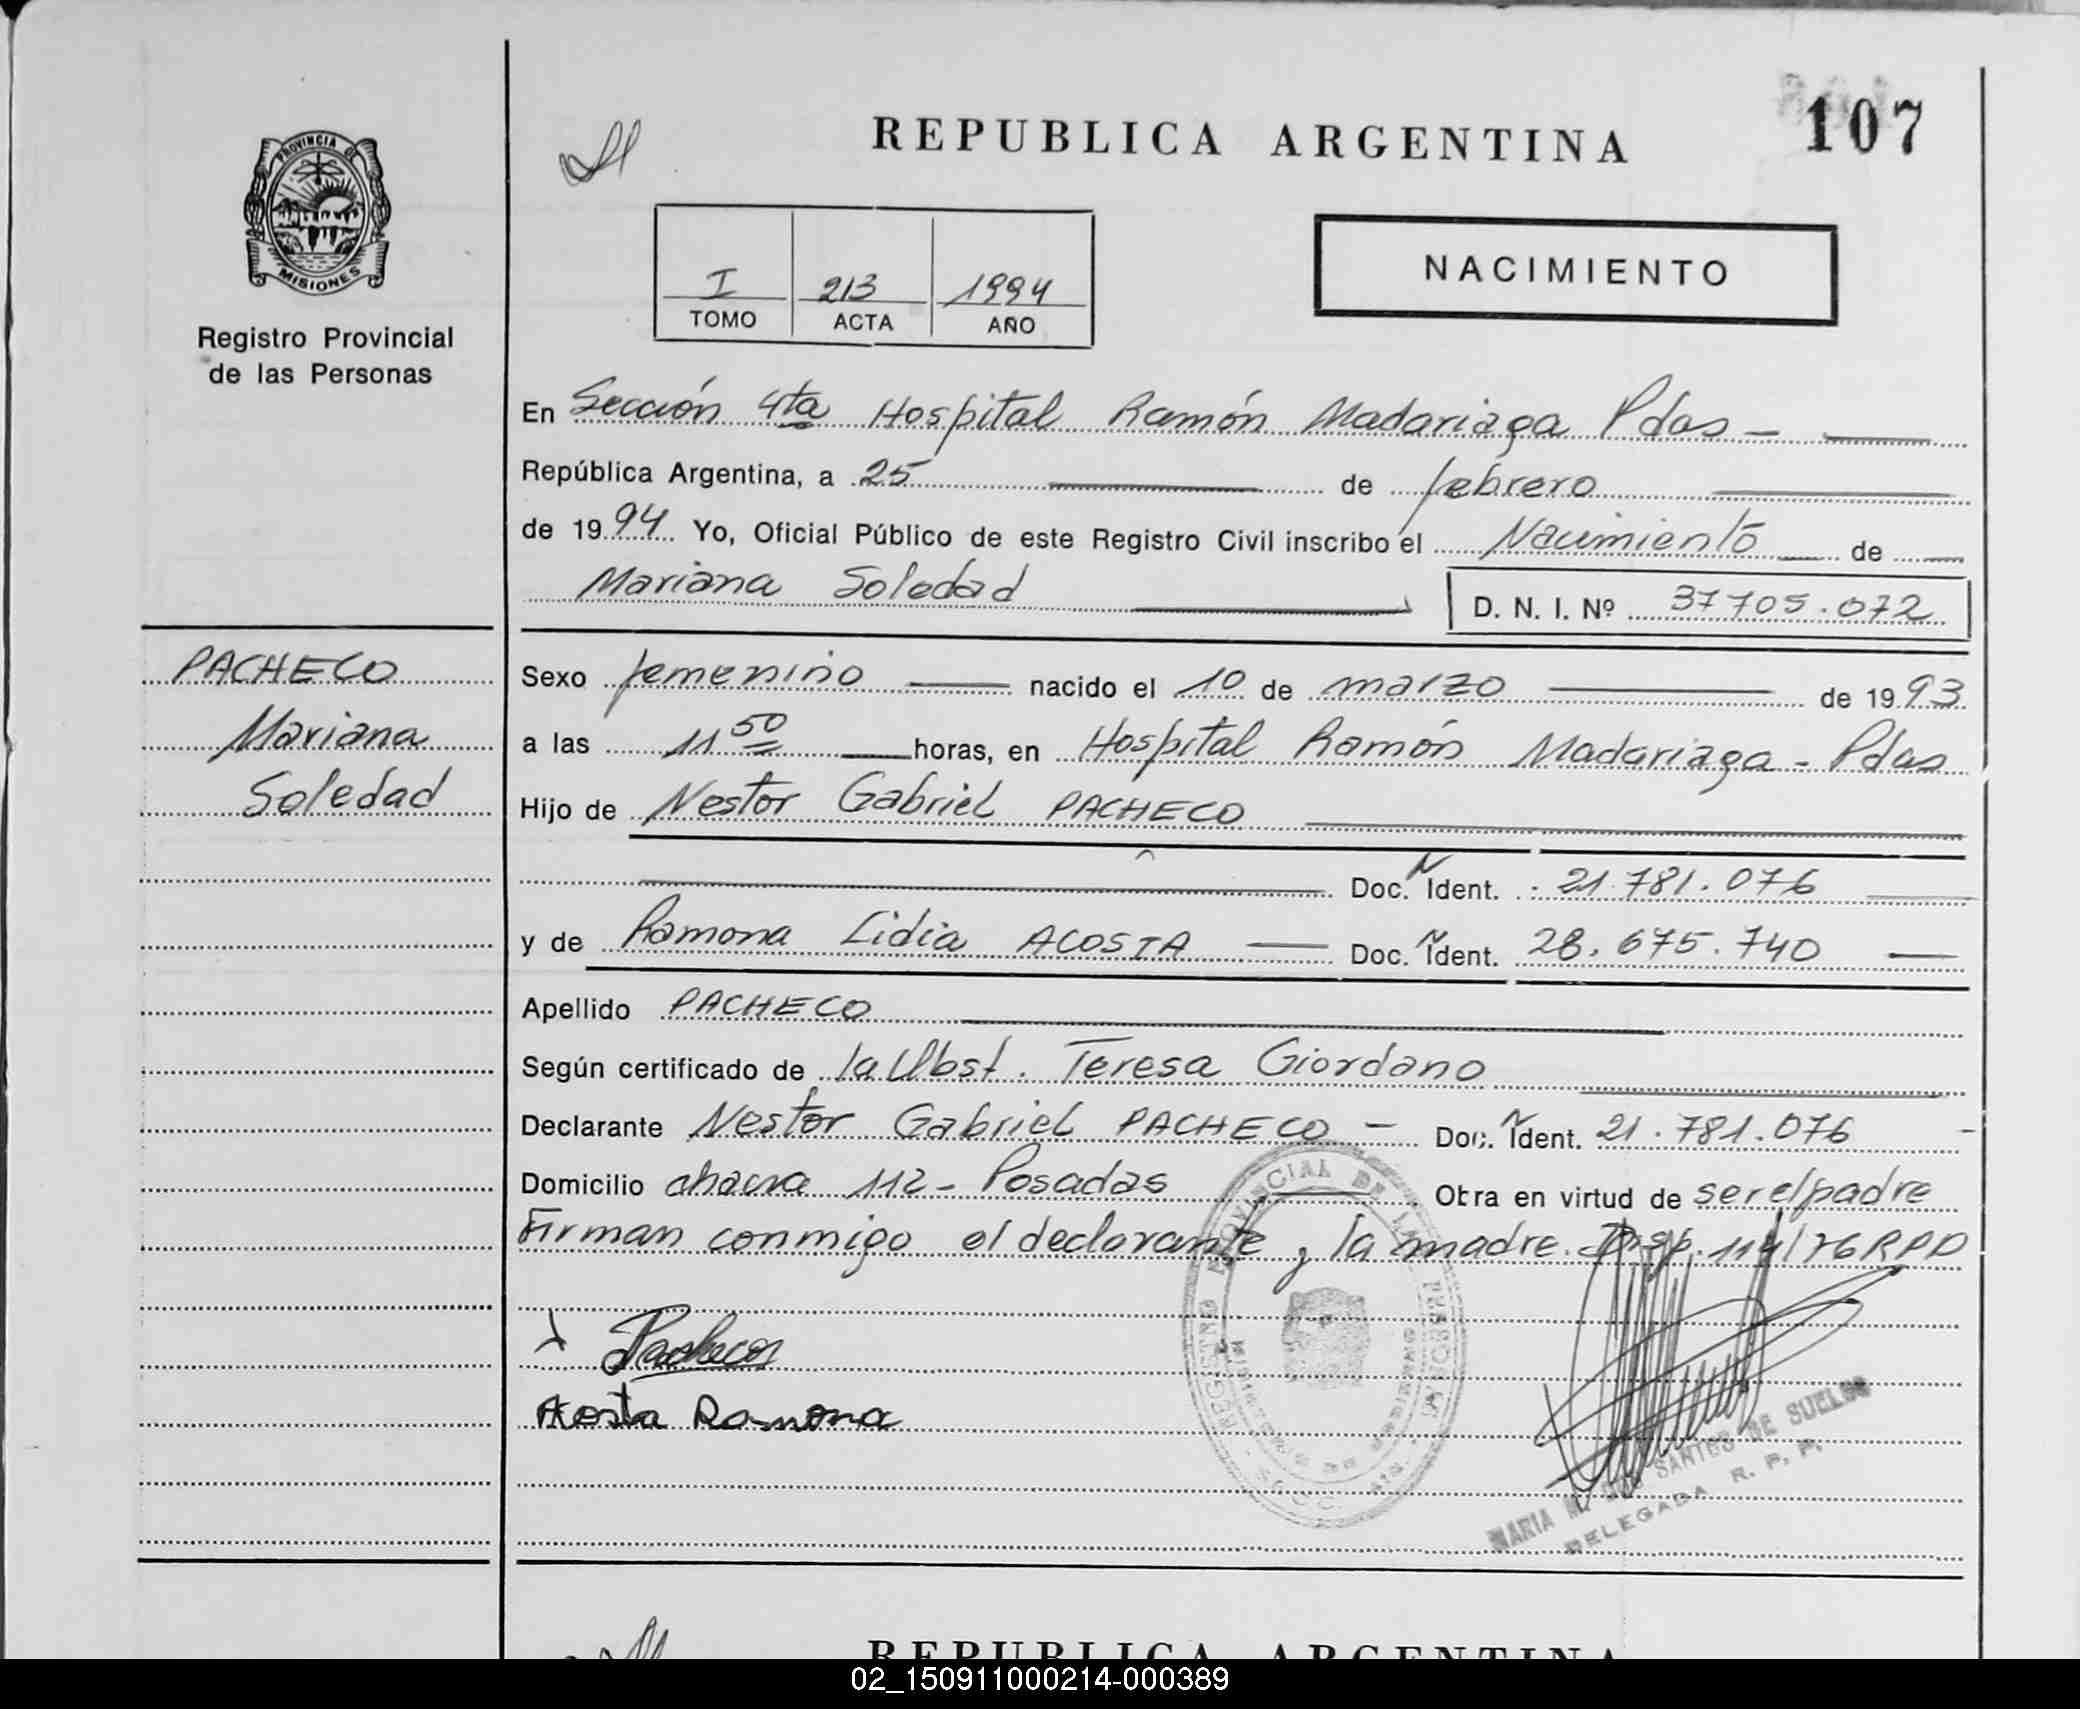 REPUBLICA ARGENTINA
107
PROVINCIA DE
MISIONES
Registro Provincial
de las Personas
I 213 1994
TOMO ACTA AÑO
NACIMIENTO
En Sección 4ta Hospital Ramón Madariaga Pdas -
República Argentina, a 25 de febrero
de 1994 Yo, Oficial Público de este Registro Civil inscribo el Nacimiento de
Mariana Soledad D. N. I. Nº 37705.072
PACHECO
Mariana
Soledad
Sexo femenino nacido el 10 de marzo de 1993
a las 11 50 horas, en Hospital Ramón Madariaga - Pdas
Hijo de Nestor Gabriel PACHECO
Doc. Ident. 21.781.076
y de Ramona Lidia ACOSTA Doc. Ident. 28.675.740
Apellido PACHECO
Según certificado de la Obst. Teresa Giordano
Declarante Nestor Gabriel PACHECO - Doc. Ident. 21.781.076 -
Domicilio chacra 112 - Posadas Obra en virtud de ser el padre
Firman conmigo el declarante y la madre. Disp. 114/76 RPP
Pacheco
Acosta Ramona
REGISTRO PROVINCIAL DE LAS PERSONAS
MARIA M. DOS SANTOS DE SUELDO
DELEGADA R. P. P.
REPUBLICA ARGENTINA
02_150911000214-000389